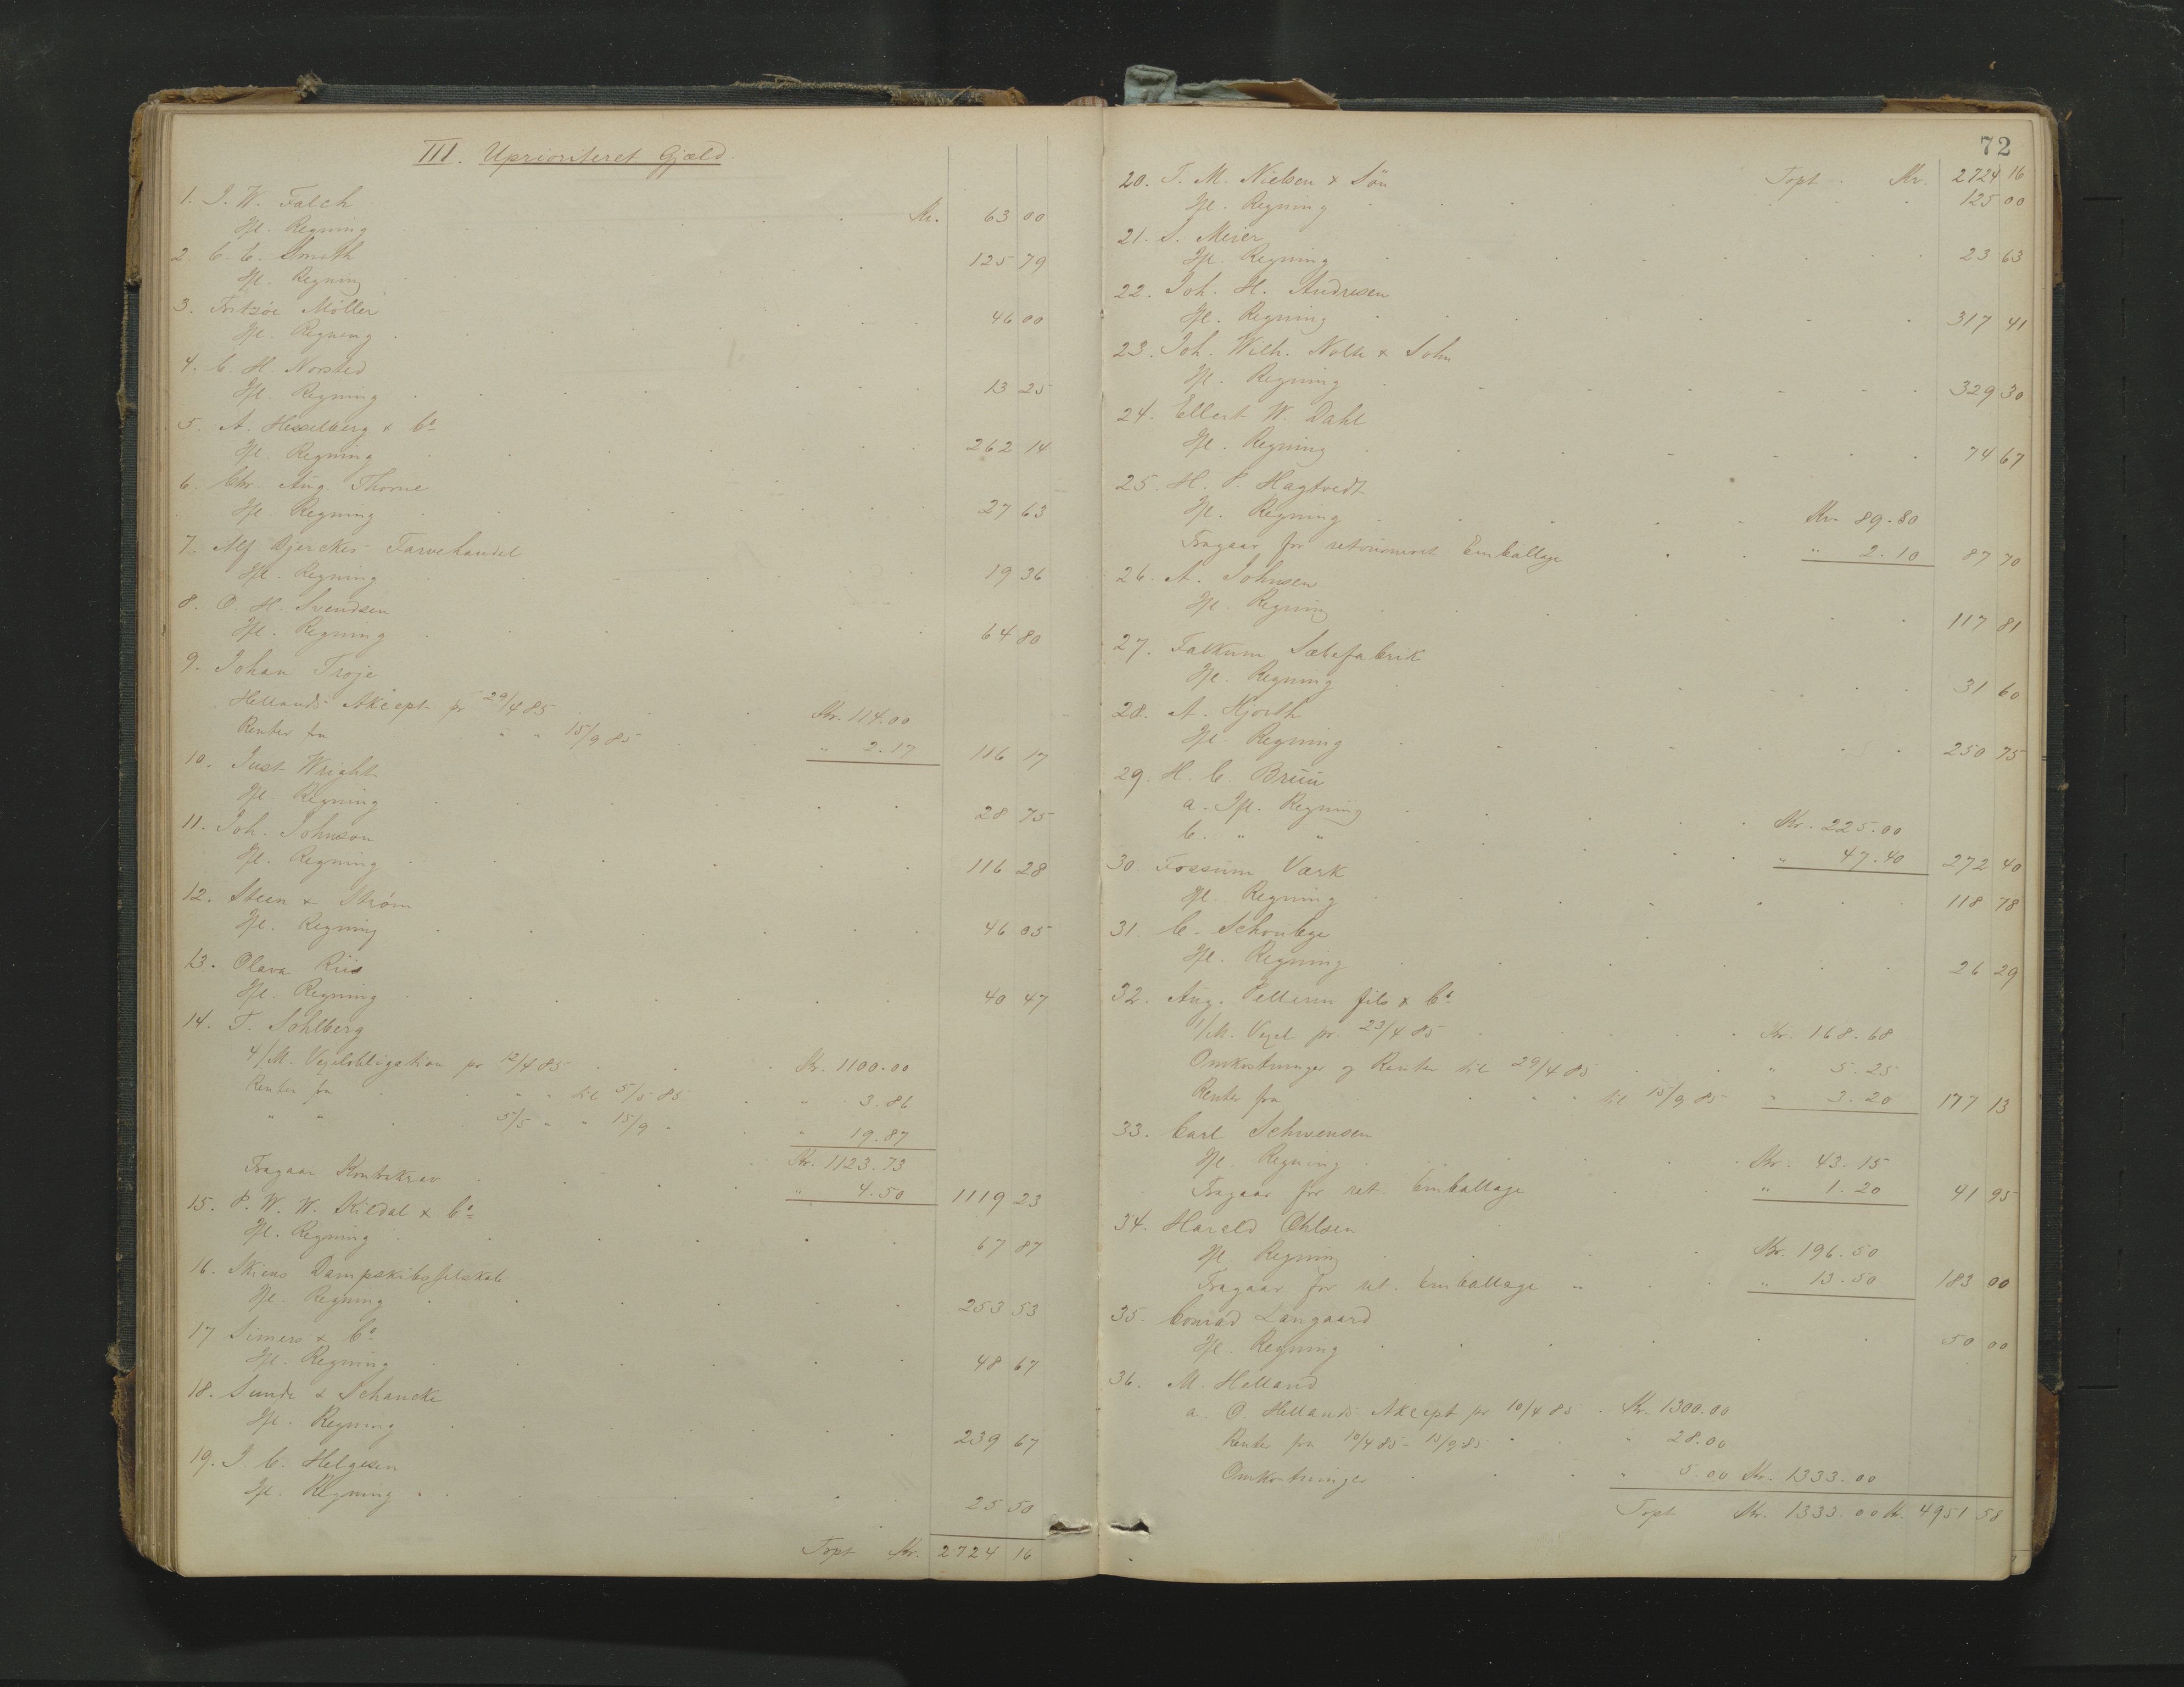 III. Uprioriteret Gjæld.
1. I. W. Falch
Ifl. Regning Kr. 63 00
2. C. C. Smith
Ifl. Regning 125 79
3. Fritzöe Möller
Ifl. Regning 46 00
4. C. H. Norsted
Ifl. Regning 13 25
5. A. Hesselberg & Co
Ifl. Regning 262 14
6. Chr. Aug. Thorne
Ifl. Regning 27 63
7. Alf Bjerckes Farvehandel
Ifl. Regning 19 36
8. O. H. Svendsen
Ifl. Regning 64 80
9. Johan Troje
Hellands Akcept pr 29/4 85 Kr. 114.00
Renter fra " " 15/9 85 " 2.17 116 17
10. Just Wright
Ifl. Regning 28 75
11. Joh. Johnson
Ifl. Regning 116 28
12. Steen & Strøm
Ifl. Regning 46 05
13. Olava Riis
Ifl. Regning 40 47
14. T. Sohlberg
4/M. Vexelobligation pr 12/4 85 Kr. 1100.00
Renter fra " " til 5/5 85 " 3.86
" " 5/5 " " 15/9 " " 19.87
Kr. 1123.73
Fragaar Kontrakrav " 4.50 1119 23
15. P. W. W. Kildal & Co
Ifl. Regning 67 87
16. Skiens Dampskibsselskab
Ifl. Regning 253 53
17 Simers & Co
Ifl. Regning 48 67
18. Sunde & Schancke
Ifl. Regning 239 67
19. I. C. Helgesen
Ifl. Regning 25 50
Trpt Kr. 2724 16
72
Trpt Kr. 2724 16
20. T. M. Nielsen & Søn
Ifl. Regning 125 00
21. S. Meier
Ifl. Regning 23 63
22. Joh. H. Andresen
Ifl. Regning 317 41
23. Joh. Wilh. Nolte & Sohn
Ifl. Regning 329 30
24. Ellert W. Dahl
Ifl. Regning 74 67
25. H. P. Hagtvedt
Ifl. Regning Kr. 89.80
Fragaar for retourneret Emballage " 2.10 87 70
26. A. Johnsen
Ifl. Regning 117 81
27. Falkum Sæbefabrik
Ifl. Regning 31 60
28. A. Hjorth
Ifl. Regning 250 75
29. H. C. Bruu
a. Ifl. Regning Kr. 225.00
b. " " " 47.40 272 40
30. Fossum Værk
Ifl. Regning 118 78
31. C. Schoubye
Ifl. Regning 26 29
32. Aug. Pellerin fils & Co
1/M. Vexel pr. 23/4 85 Kr. 168.68
Omkostninger og Renter til 29/4 85 " 5.25
Renter fra " " til 15/9 85 " 3.20 177 13
33. Carl Schwensen
Ifl. Regning Kr. 43.15
Fragaar for ret. Emballage " 1.20 41 95
34. Harald Ohlsen
Ifl. Regning Kr. 196.50
Fragaar for ret. Emballage " 13.50 183 00
35. Conrad Langaard
Ifl. Regning 50 00
36. M. Helland
a. O. Hellands Akcept pr 10/4 85 Kr. 1300.00
Renter fra 10/4 85 - 15/9 85 " 28.00
Omkostninger " 5.00 Kr. 1333.00
Trpt Kr. 1333.00 Kr. 4951 58